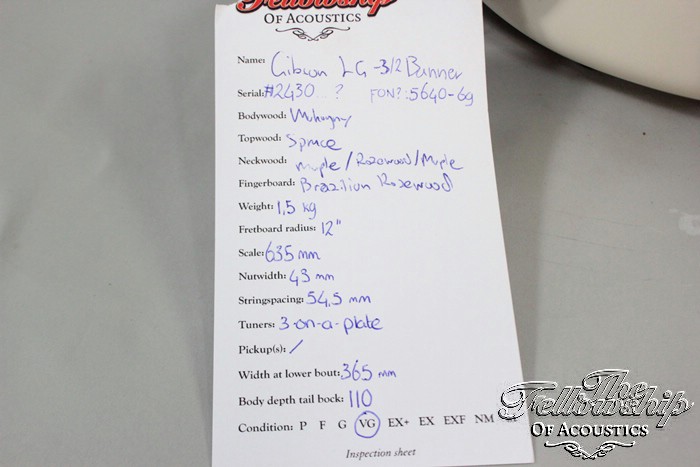 Fellowship
OF ACOUSTICS
Name: Gibson LG-3/2 Banner
Serial: #2430...? FON?:5640-69
Bodywood: Mahogany
Topwood: Spruce
Neckwood: Maple/Rosewood/Maple
Fingerboard: Brazilian Rosewood
Weight: 1,5 kg
Fretboard radius: 12"
Scale: 635 mm
Nutwidth: 43 mm
Stringspacing: 54,5 mm
Tuners: 3-on-a-plate
Pickup(s): /
Width at lower bout: 365 mm
Body depth tail bock: 110
Condition: P F G VG EX+ EX EXF NM
Inspection sheet
The
Fellowship
OF ACOUSTICS